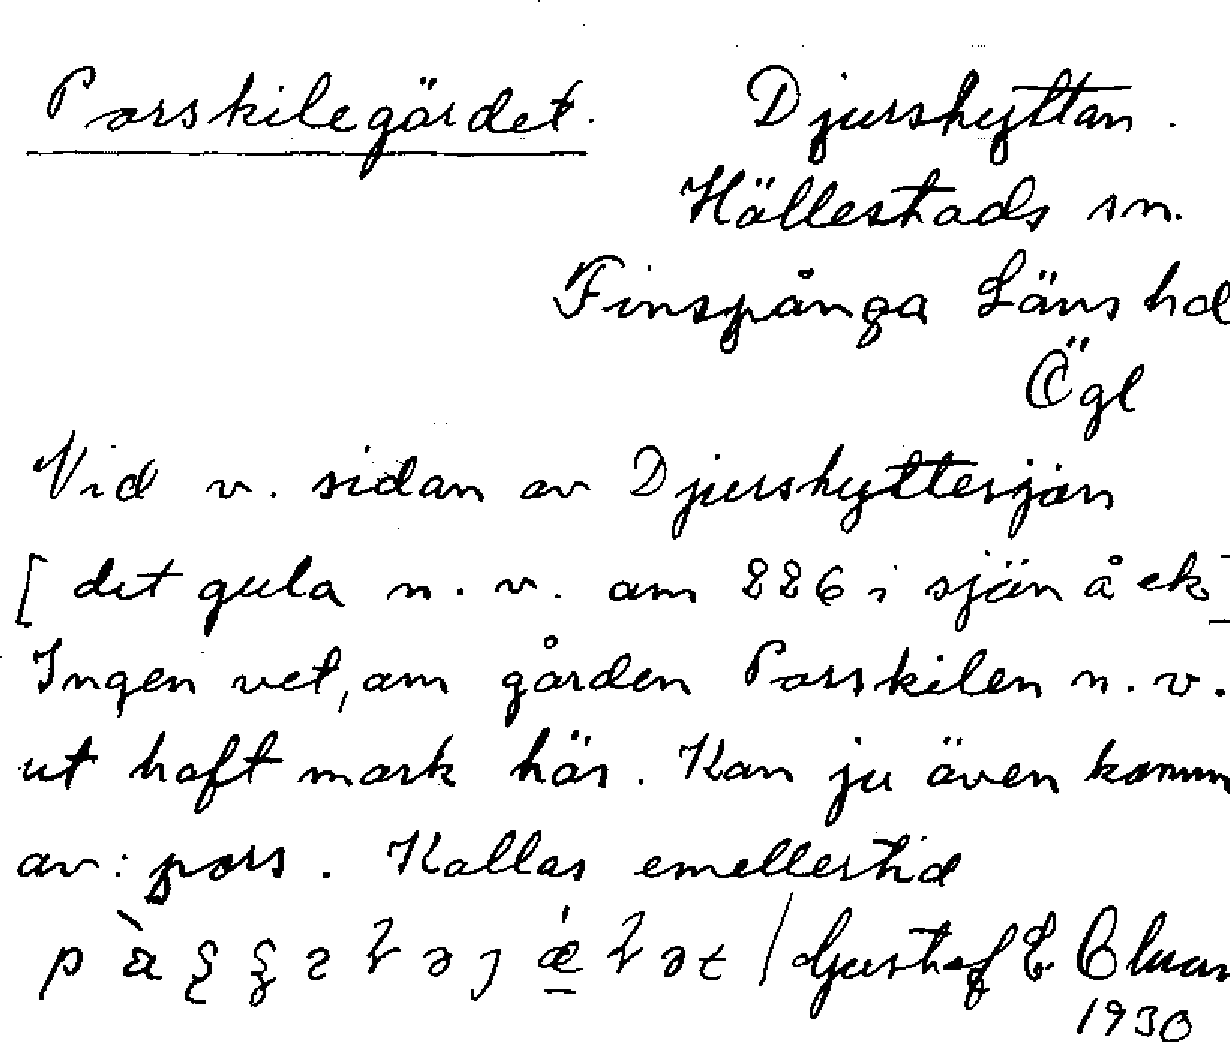 Porskilegärdet. Djurshyttan.
Hällestads sn.
Finspånga Läns hd
Ögl
Vid v. sidan av Djurshyttesjön
[det gula n. v. om 226 i sjön å ek]
Ingen vet, om gården Porskilen n. v.
ut haft mark här. Kan ju även komm
av: pors. Kallas emellertid
Gustaf E.
1930